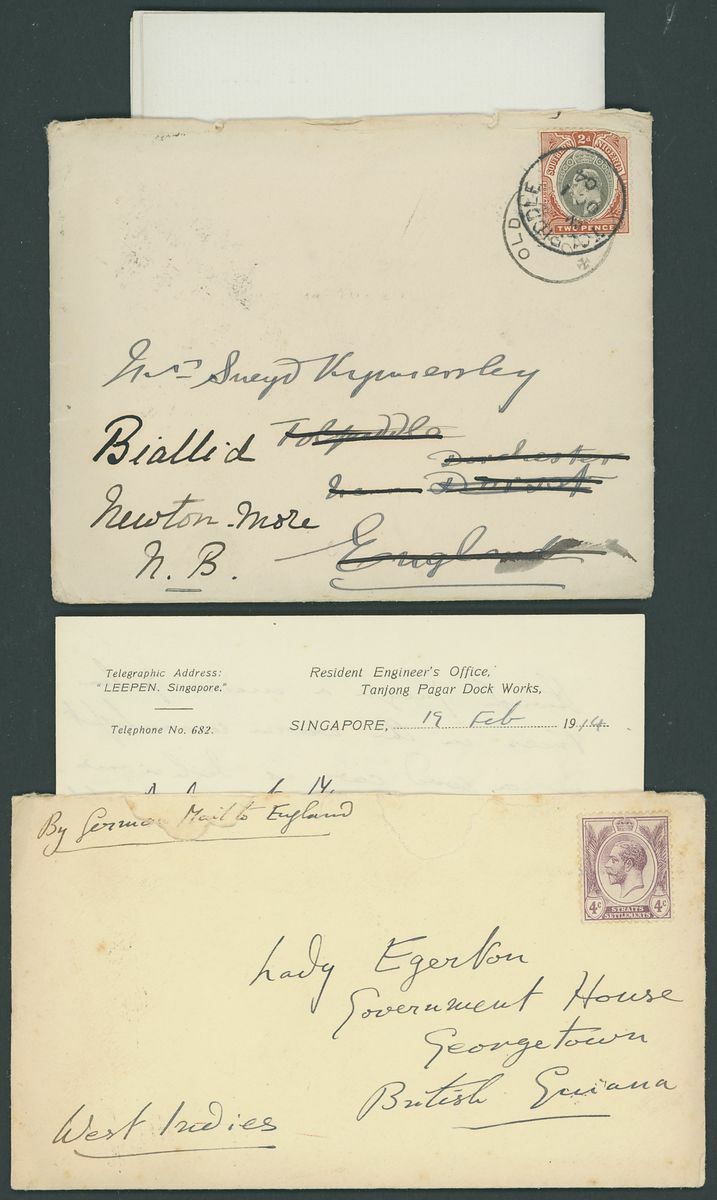 SOUTHERN 2d NIGERIA
TWO PENCE
OLD
Mrs Sneyd Kynnersley
Biallid Tolpuddle
Dorchester
Newton-More Dorset
N. B. England
Telegraphic Address:
"LEEPEN. Singapore."
Telephone No. 682.
Resident Engineer's Office,
Tanjong Pagar Dock Works,
SINGAPORE, 19 Feb 1914.
By German Mail to England
4c STRAITS SETTLEMENTS 4c
Lady Egerton
Government House
Georgetown
British Guiana
West Indies